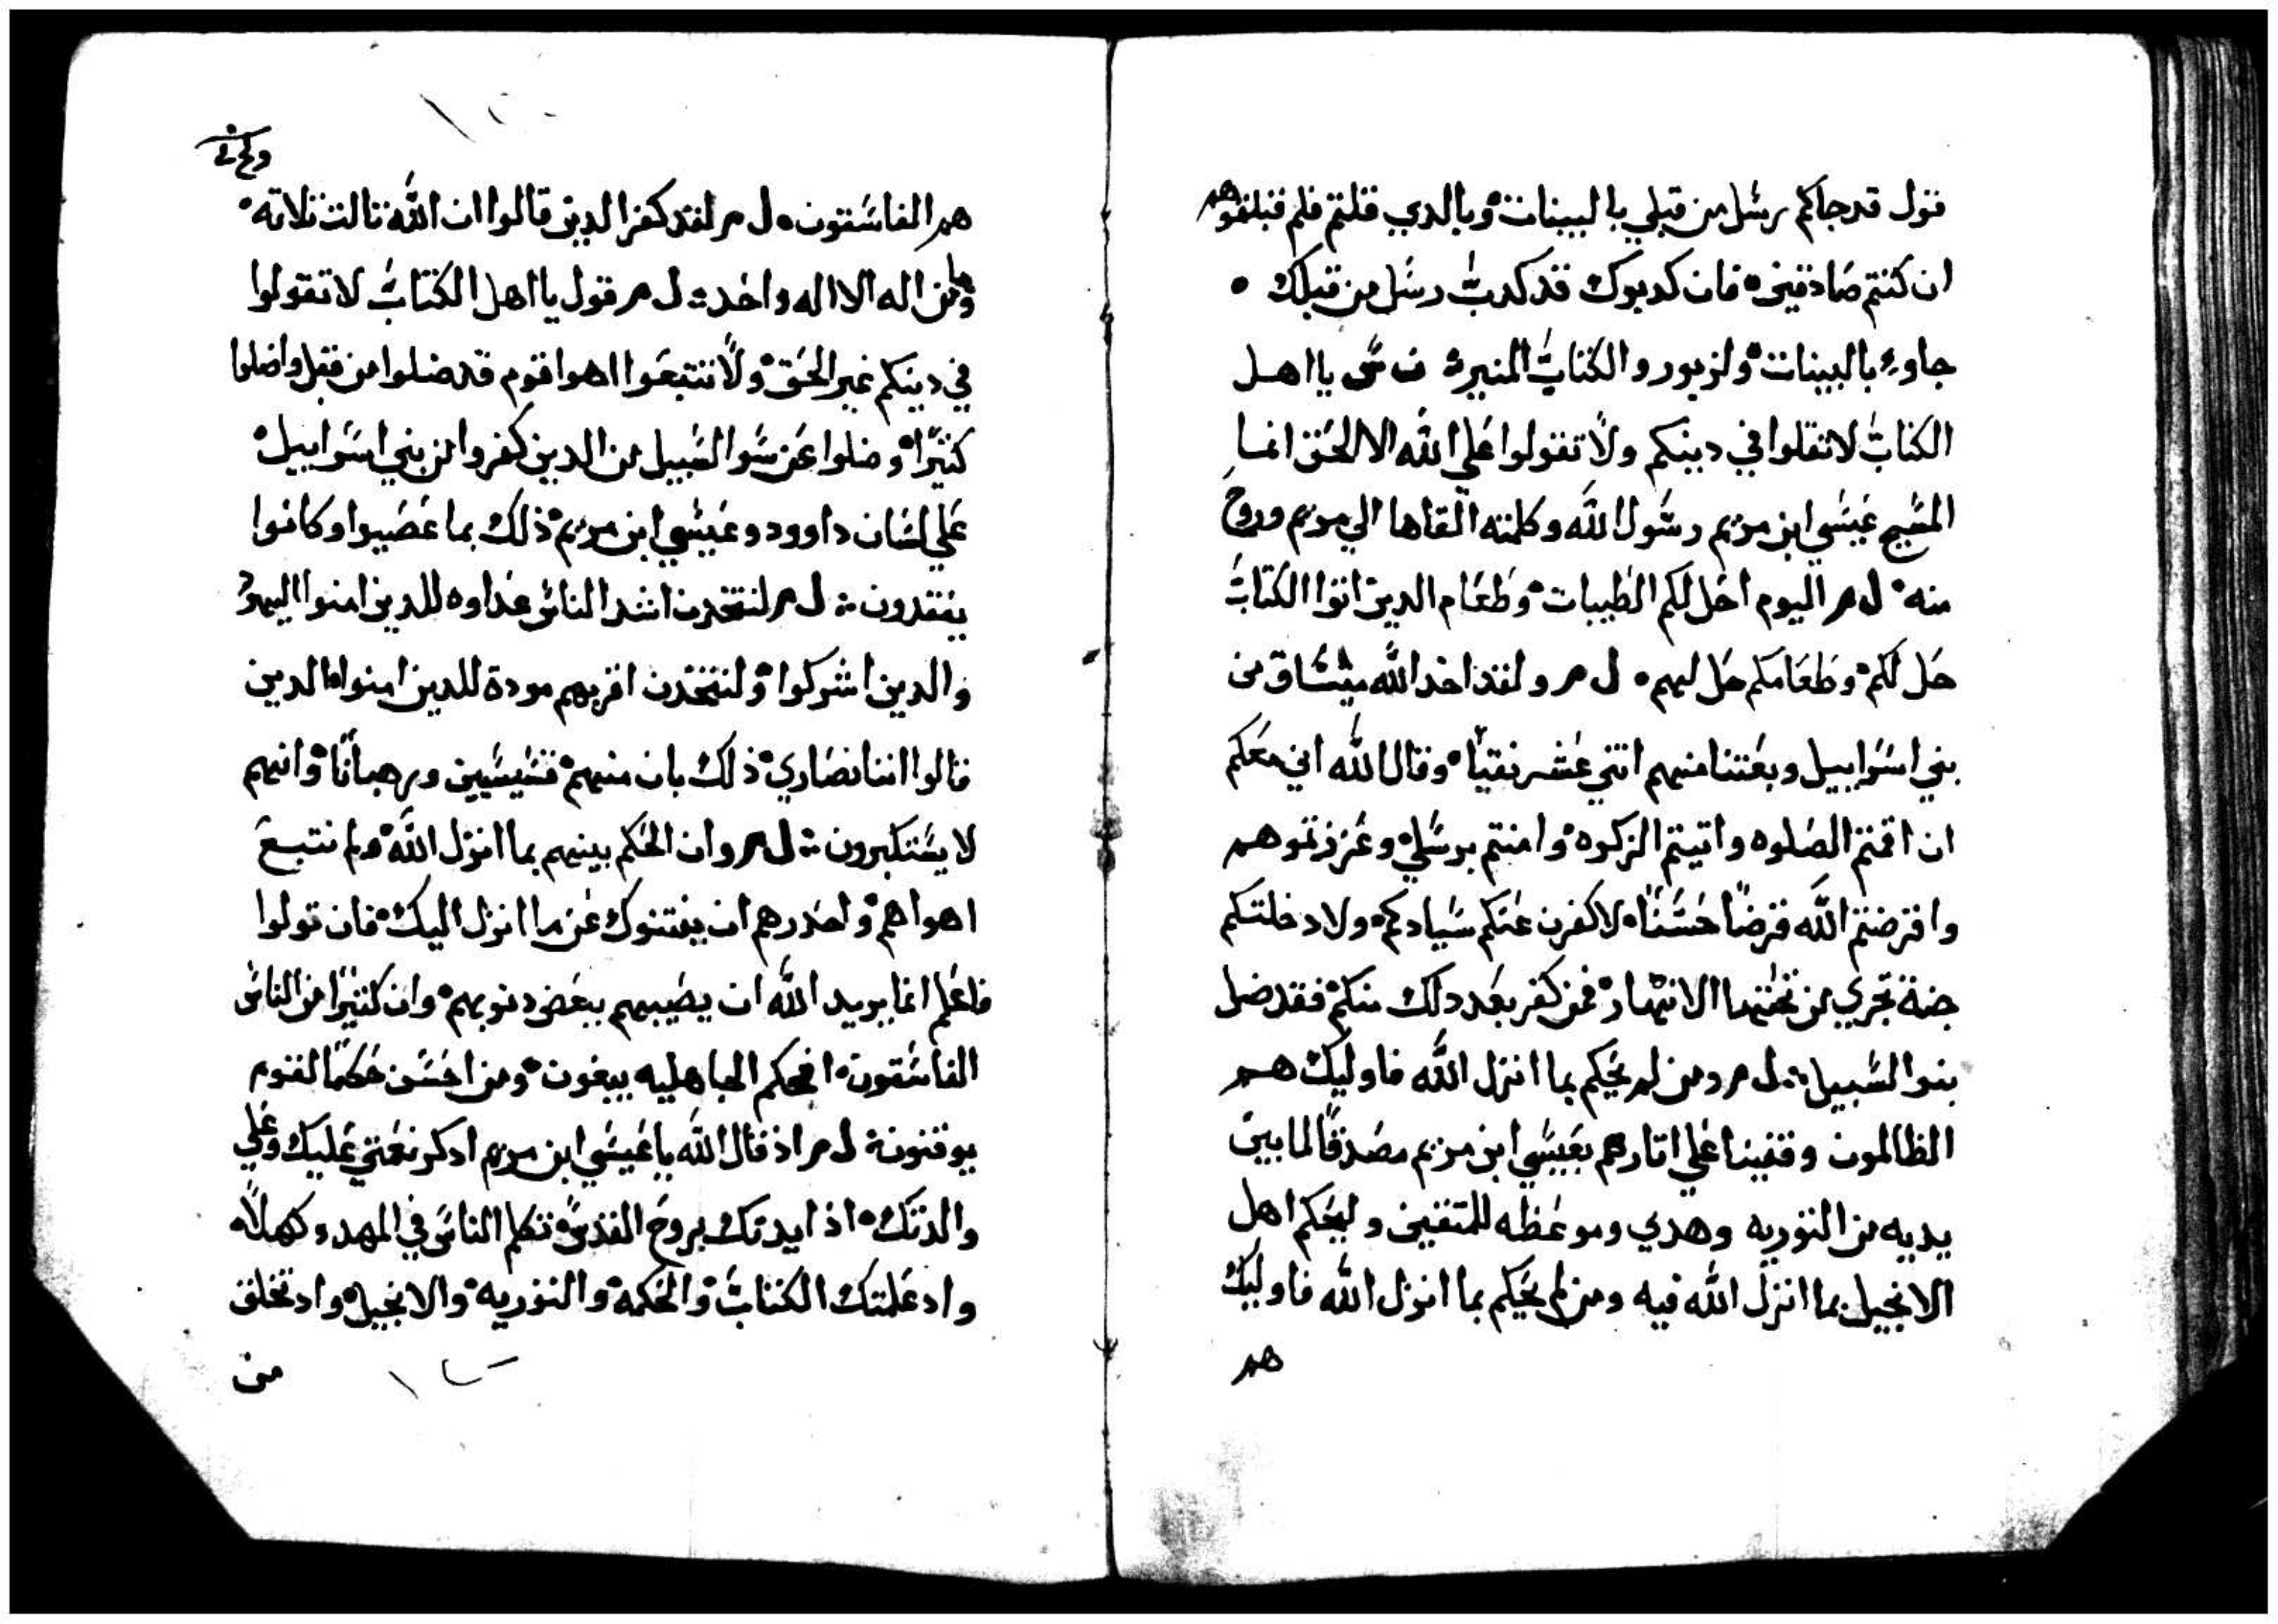 قول قد جاكم رسل من قبلي بالبينات وبالدي قلتم فلم قتلتموهم
ان كنتم صادقين فان كدبوك فقد كدبت رسل من قبلك
جاوء بالبينات ولزبور والكتاب المنير ن س يا اهل
الكتاب لا تغلوا في دينكم ولا تقولوا علي الله الا الحق انما
المسيح عيسي ابن مريم رسول الله وكلمته القاها الي مريم وروح
منه ل م اليوم احل لكم الطيبات وطعام الدين اتوا الكتاب
حل لكم وطعامكم حل لهم ل م ولقد اخد الله ميتاق من
بني اسراييل وبعتنا منهم اتني عشر نقيباً وقال الله اني معكم
ان اقمتم الصلوه واتيتم الزكوه وامنتم برسلي وعزرتموهم
واقرضتم الله قرضاً حسناً لا كفرن عنكم سياتكم ولا دخلتكم
جنة تجري من تحتها الانهار فمن كفر بعد دلك منكم فقد ضل
سوا السبيل ل م ومن لم يحكم بما انزل الله فاوليك هم
الظالمون وقفينا علي اتارهم بعيسي ابن مريم مصدقاً لما بين
يديه من التوريه وهدي وموعظه للمتقين وليحكم اهل
الانجيل بما انزل الله فيه ومن لم يحكم بما انزل الله فاوليك
هم
هم الفاسقون ل م لقد كفر الدين قالوا ان الله تالت تلاته
وما من اله الا اله واحد ل م قول يا اهل الكتاب لا تقولوا
في دينكم غير الحق ولا تتبعوا اهوا قوم قد ضلوا من قبل واضلوا
كتيراً وضلوا عن سوا السبيل من الدين كفروا من بني اسراييل
علي لسان داوود وعيسي ابن مريم ذلك بما عصيوا وكانوا
يعتدون ل م لتتخدن اشد الناس عداوه للدين امنوا اليهود
والدين اشركوا ولتتخدن اقربهم مودة للدين امنوا الدين
قالوا اننا نصاري ذلك بان منهم قسيسين ورهباناً وانهم
لا يستكبرون ل م وان الحكم بينهم بما انزل الله ولم نتبع
اهواهم واحدرهم ان يفتنوك عن ما انزل اليك فان تولوا
فاعلم انما يريد الله ان يصيبهم ببعض دنوبهم وان كتيراً من الناس
الفاسقون افحكم الجاهليه يبغون ومن احسن حكماً لقوم
يوقنون ل م اذ قال الله يا عيسي ابن مريم ادكر نعمتي عليك وعلي
والدتك اذ ايدتك بروح القدس تكلم الناس في المهد وكهلاً
واد علمتك الكتاب والحكمه والتوريه والانجيل واد تخلق
من